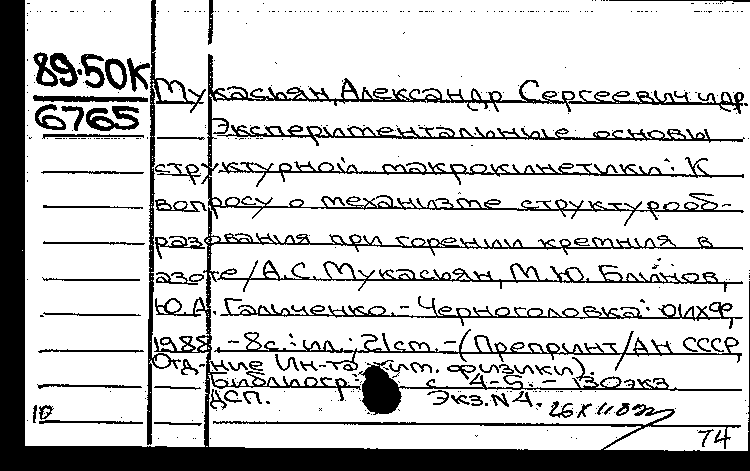 89-50К
6765
Мукасьян, Александр Сергеевич и др.
Экспериментальные основы
структурной макрокинетики: К
вопросу о механизме структурооб-
разования при горении кремния в
азоте / А.С. Мукасьян, М.Ю. Блинов,
Ю.А. Гальченко. - Черноголовка: ОИХФ,
1988. - 8с.: ил.; 21см. - (Препринт / АН СССР,
Отд-ние Ин-та хим. физики).
Библиогр.: с. 4-5. - 130экз.
ДСП. Экз.N 4.
10
74